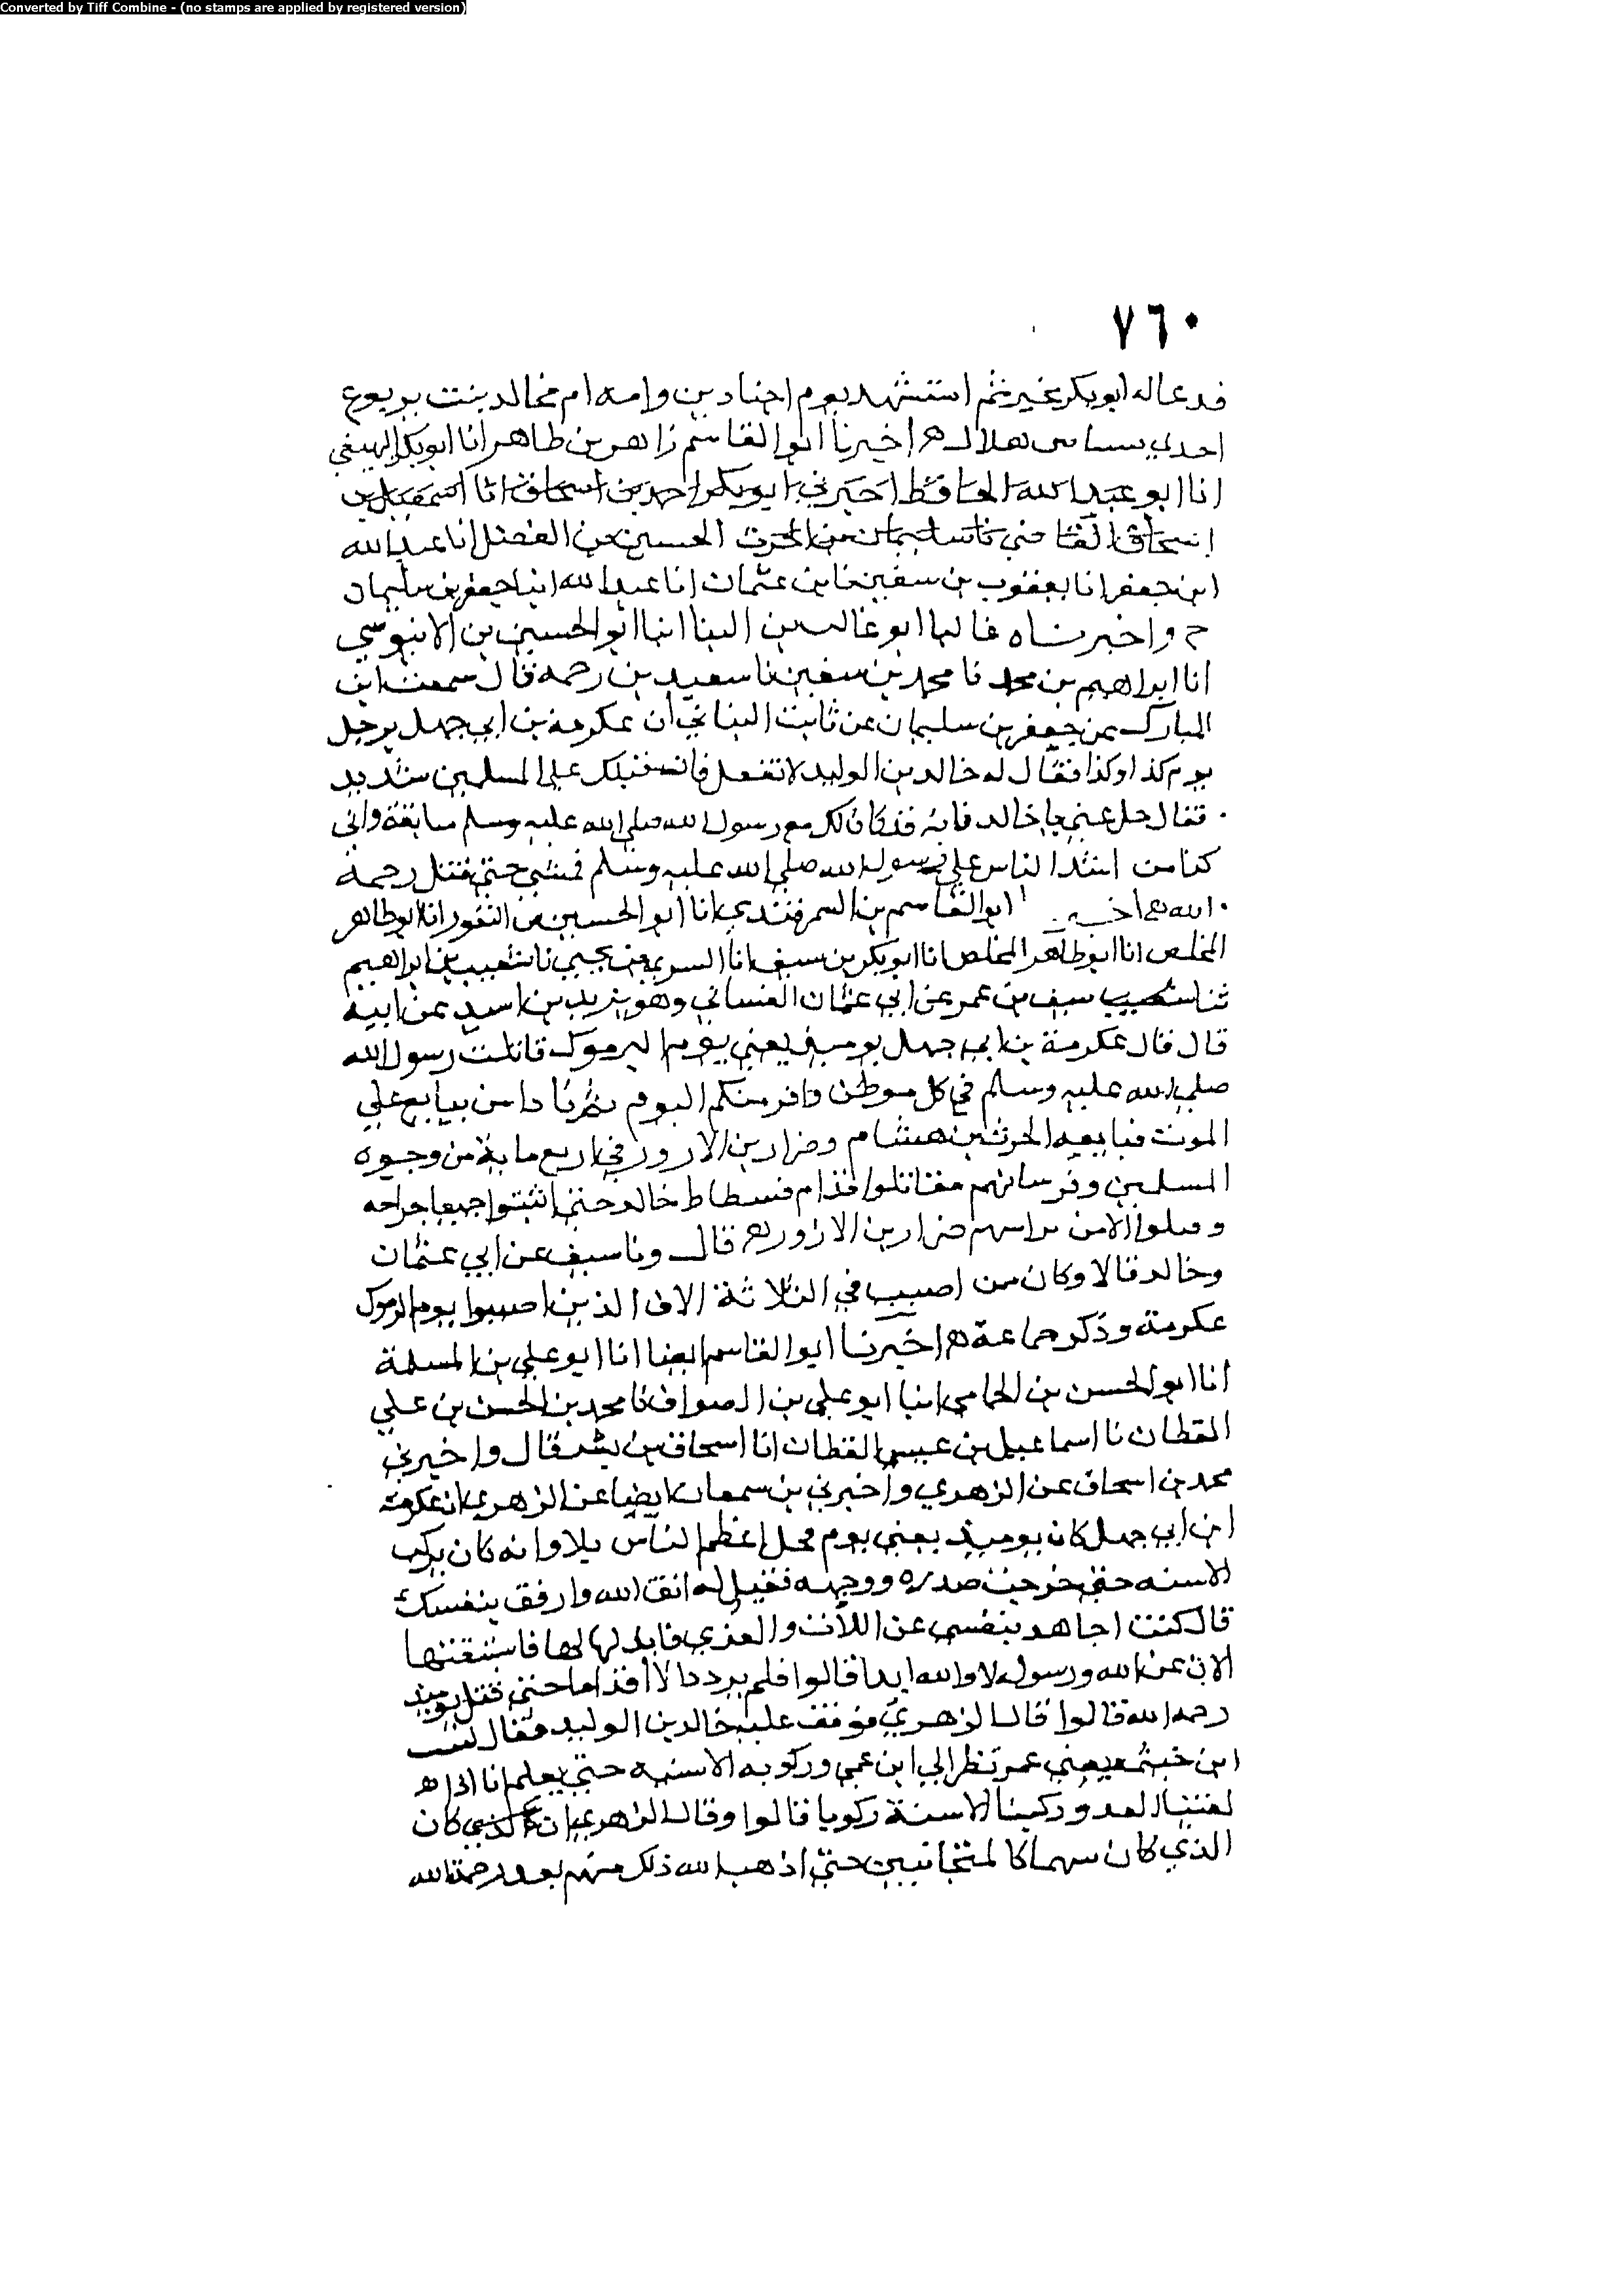 Converted by Tiff Combine - (no stamps are applied by registered version)
٧٦٠
فدعا له ابو بكر بخير ثم استشهد يوم اجنادين وامه ام مجالد بنت يربوع
احدي هلال هـ اخبرنا ابوا القاسم زاهر بن طاهر انا ابو بكر البيهقي
انا ابو عبد الله الحافظ اخبرني ابو بكر احمد بن اسحاق انا اسمعيل بن
اسحاق القاضي نا سليمان بن الحرث الحسين بن الفضل انا عبد الله
ابن جعفر انا يعقوب بن سفين نا بن عثمان انا عبد الله انبا جعفر بن سليمان
ح واخبرناه غالبا ابو غالب بن البنا انبا ابو الحسين بن الابنوسي
انا ابراهيم بن محمد نا محمد بن سفين نا سعيد بن رحمه قال سمعت ابن
المبارك عن جعفر بن سليمان عن ثابت البناني ان عكرمة بن ابي جهل يرجل
يوم كذا وكذا فقال له خالد بن الوليد لا تفعل فان قتلك علي المسلمين شديد
فقال خل عني يا خالد فانه قد كان لك مع رسول الله صلي الله عليه وسلم سابقة واني
كنا من اشد الناس علي رسول الله صلي الله عليه وسلم فمشي حتي قتل رحمة
الله هـ اخبرنا ابو القاسم بن السمرقندي انا ابو الحسين بن النقور انا ابو طاهر
المخلص انا ابو طاهر المخلص انا ابو بكر بن سيف انا السري بن يحيي نا شعيب بن ابراهيم
ثنا شعيب سيف بن عمر عن ابي عثمان الغساني وهو يزيد بن اسيد عن ابيه
قال قال عكرمة بن ابي جهل يوميذ يعني يوم اليرموك قاتلت رسول الله
صلي الله عليه وسلم في كل موطن وافر منكم اليوم ثم نادا من يبايع علي
الموت فبايعه الحرث بن هشام وضرار بن الازور في اربع ماية من وجوه
المسلمين وفرسانهم فقاتلوا قدام فسطاط خالد حتي اثبتوا جميعا جراحه
وقتلوا الا من برا منهم ضرار بن الازور هـ قال ونا سيف عن ابي عثمان
وخالد قالا وكان من اصيب في الثلاثة الاف الذين اصيبوا يوم اليرموك
عكرمة وذكر جماعة هـ اخبرنا ابوا القاسم ايضا انا ابو علي بن المسلمة
انا ابو الحسن بن الحمامي انبا ابو علي بن الصواف نا محمد بن الحسن بن علي
القطان نا اسماعيل بن عيسي القطان انا اسحاق بن بشر قال واخبرني
محمد بن اسحاق عن الزهري واخبرني بن سمعان ايضا عن الزهري ان عكرمة
ابن ابي جهل كان يوميذ يعني يوم فحل اعظم الناس بلا وانه كان يركب
الاسنه حتي خرجت صدره ووجهه فقيل له اتق الله وارفق بنفسك
قال كنت اجاهد بنفسي عن اللات والعزي فابذلها لها فاستبقيها
الان عن الله ورسوله لا والله ابدا قالوا فلم يزدد الا اقداما حتي قتل يوميذ
رحمه الله قالوا قال الزهري فوقف عليه خالد بن الوليد فقال ليت
ابن حنتمه يعني عمر نظر الي ابن عمي وركوبه الاسنه حتي يعلم انا اذا هـ
لقينا العدو ركبنا الاسنة ركوبا قالوا وقال الزهري ان الذي كان
الذي كان سهما كالمتجانبين حتي اذهب الله ذلك منهم بعد رحمة الله